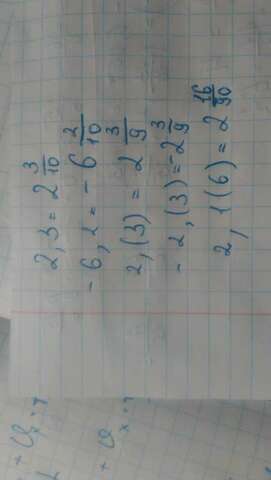 2,3 = 2 3/10
- 6,2 = - 6 2/10
2,(3) = 2 3/9
- 2,(3) = -2 3/9
2,1(6) = 2 16/90